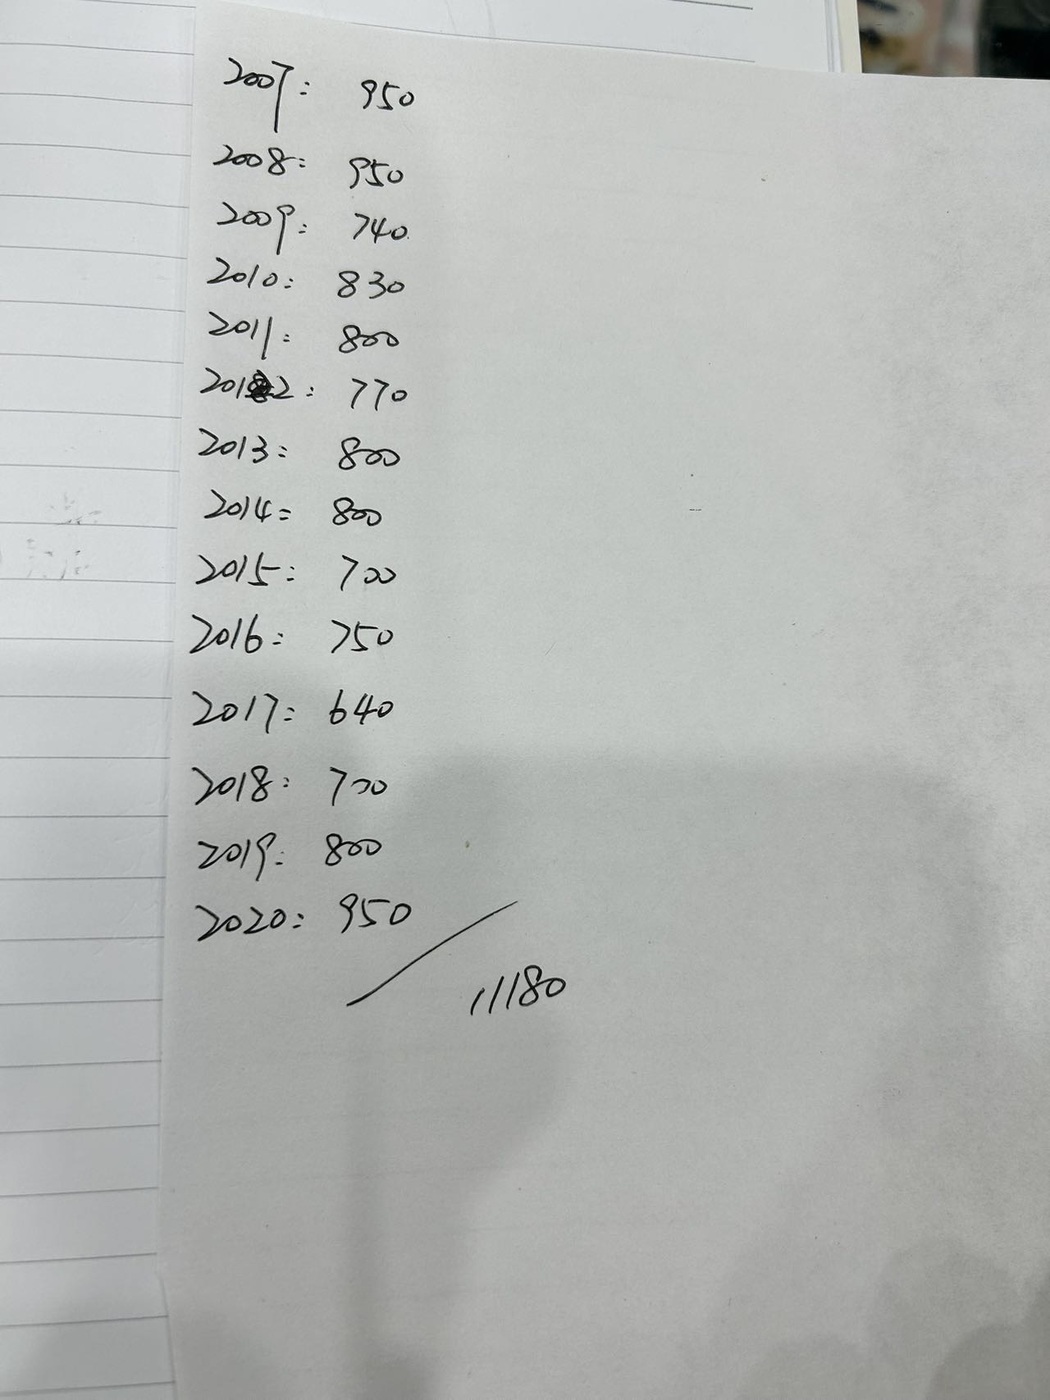 2007: 950
2008: 950
2009: 740
2010: 830
2011: 800
2012: 770
2013: 800
2014: 800
2015: 700
2016: 750
2017: 640
2018: 700
2019: 800
2020: 950
11180